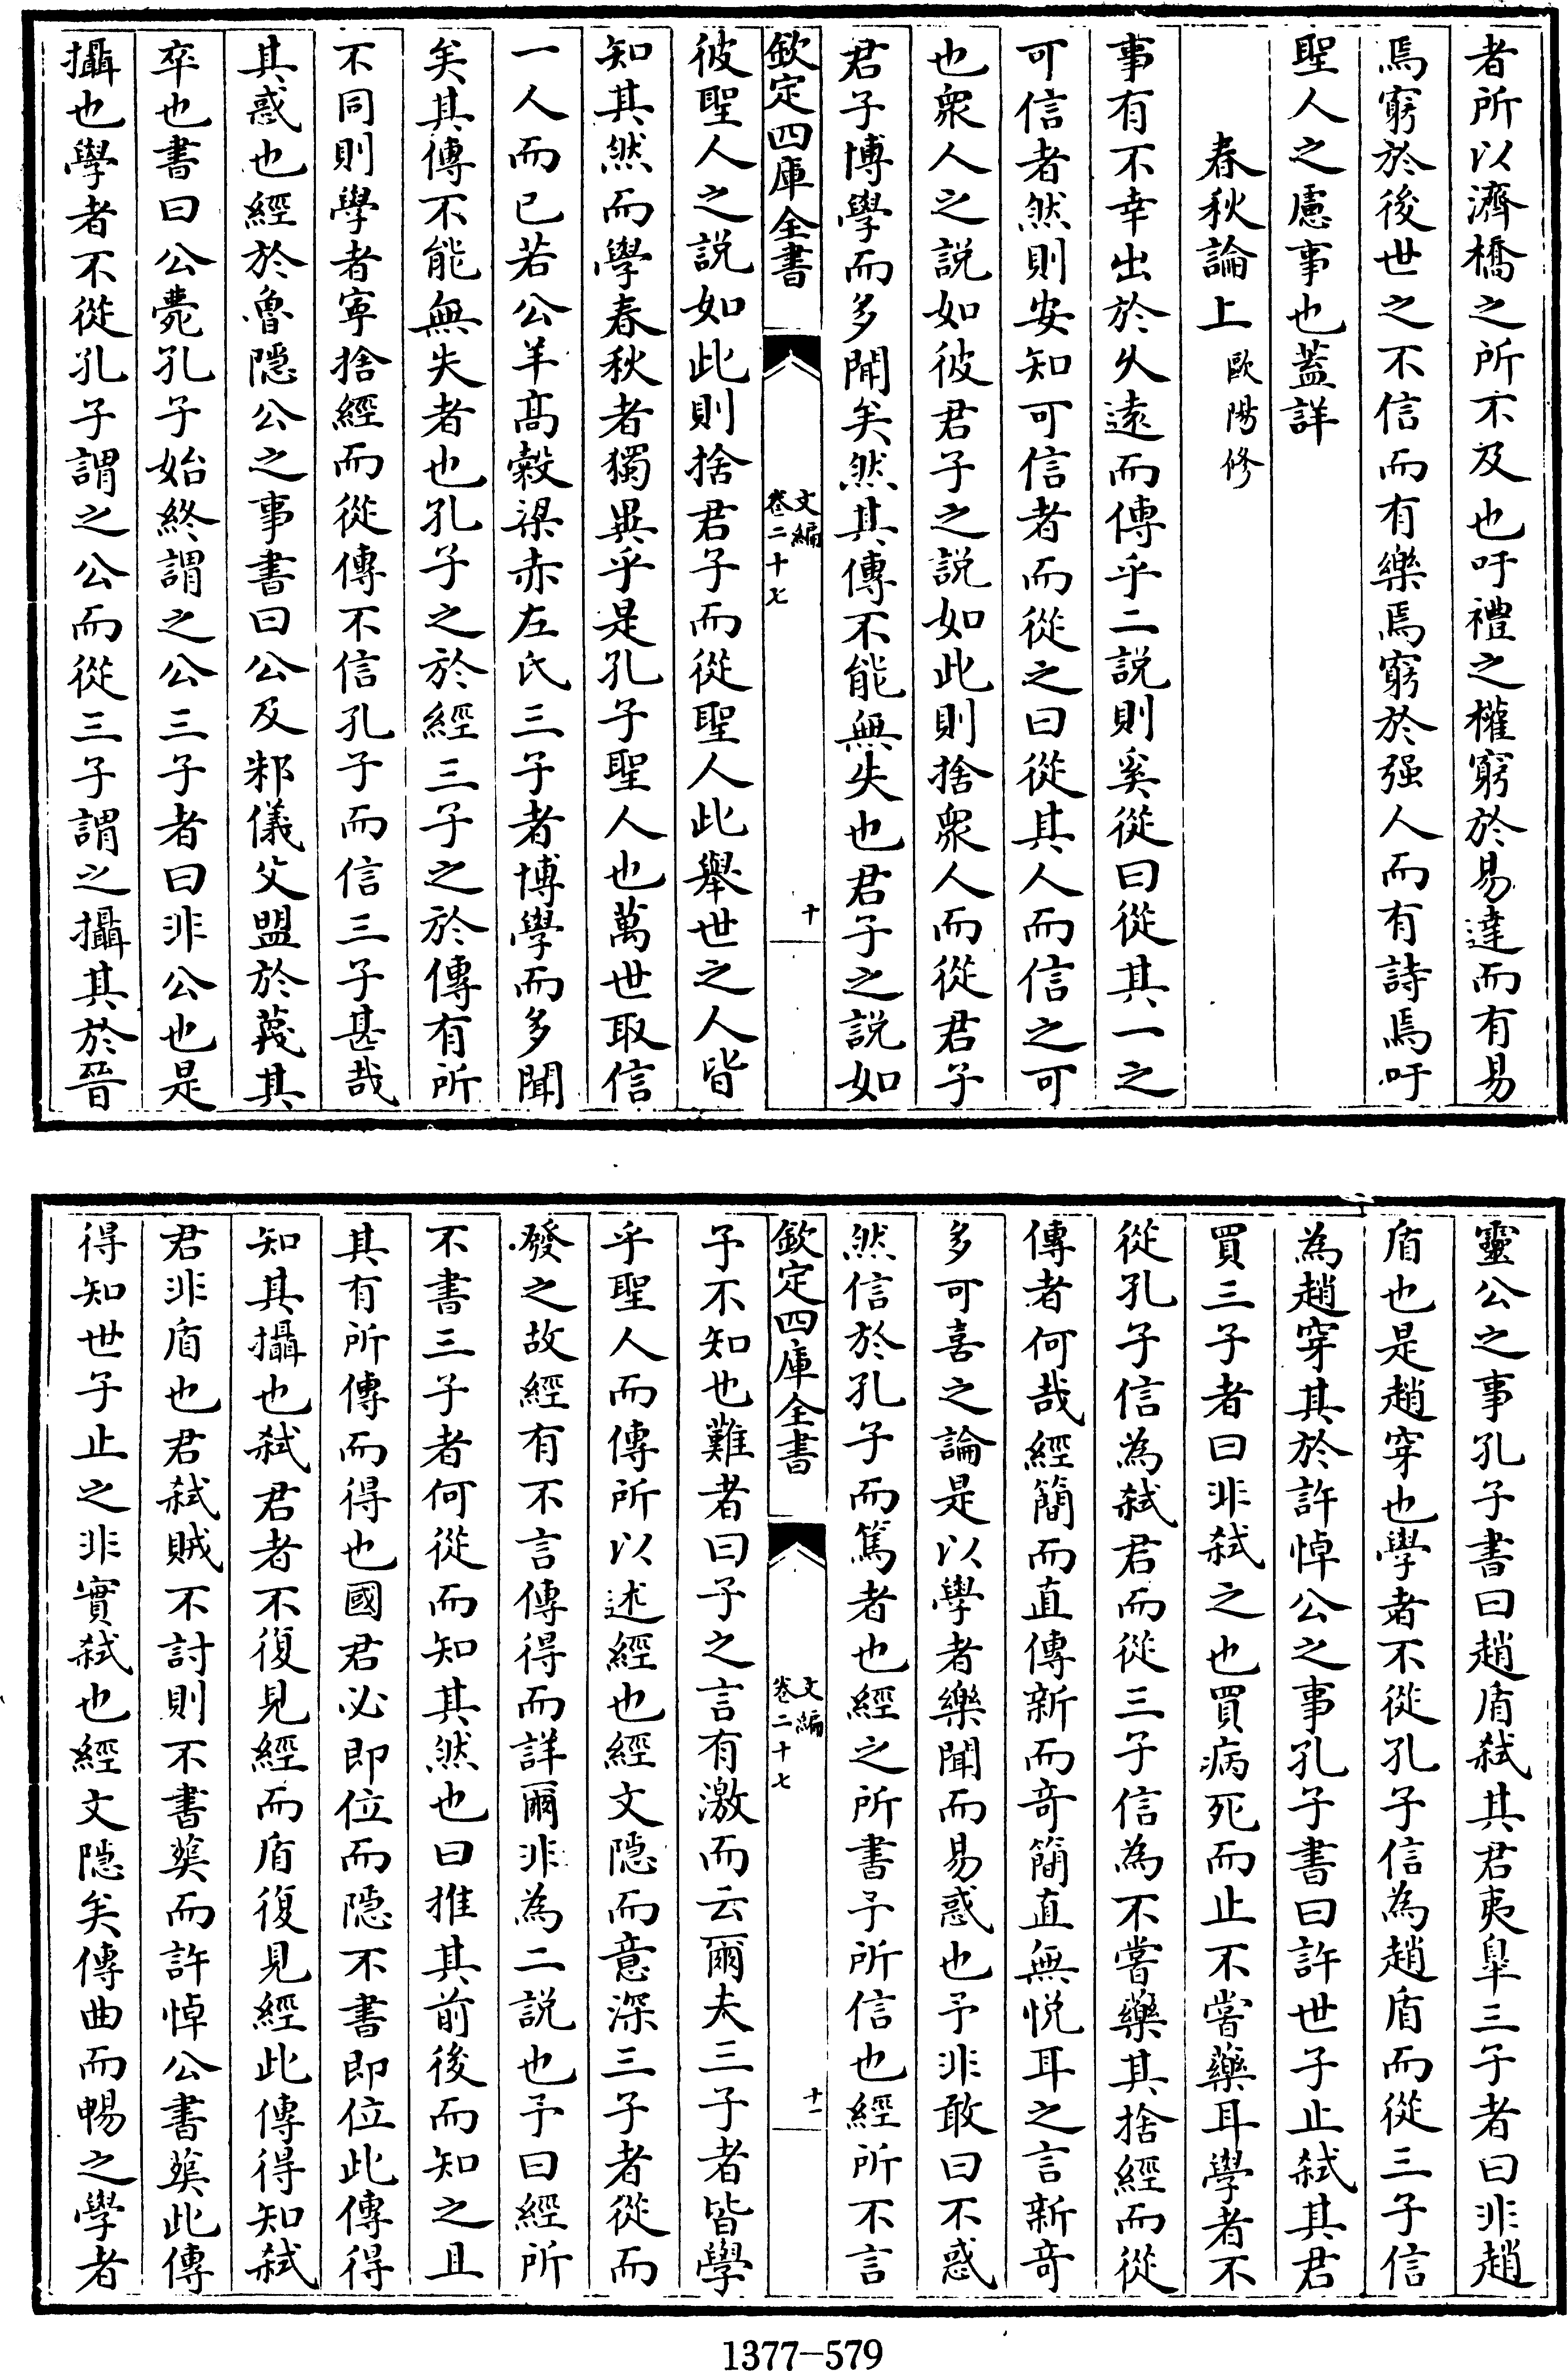 者所以濟橋之所不及也吁禮之權窮於易達而有易
焉窮於後世之不信而有樂焉窮於强人而有詩焉吁
聖人之慮事也蓋詳
春秋論上 歐陽修
事有不幸出於久遠而傳乎二説則奚從曰從其一之
可信者然則安知可信者而從之曰從其人而信之可
也衆人之説如彼君子之説如此則捨衆人而從君子
君子博學而多聞矣然其傳不能無失也君子之説如
欽定四庫全書
文編
卷二十七
十
彼聖人之説如此則捨君子而從聖人此舉世之人皆
知其然而學春秋者獨異乎是孔子聖人也萬世取信
一人而已若公羊髙榖梁赤左氏三子者博學而多聞
矣其傳不能無失者也孔子之於經三子之於傳有所
不同則學者寧捨經而從傳不信孔子而信三子甚哉
其惑也經於魯隱公之事書曰公及邾儀父盟於蔑其
卒也書曰公薨孔子始終謂之公三子者曰非公也是
攝也學者不從孔子謂之公而從三子謂之攝其於晉
靈公之事孔子書曰趙盾弑其君夷臯三子者曰非趙
盾也是趙穿也學者不從孔子信為趙盾而從三子信
為趙穿其於許悼公之事孔子書曰許世子止弑其君
買三子者曰非弑之也買病死而止不嘗藥耳學者不
從孔子信為弑君而從三子信為不嘗藥其捨經而從
傳者何哉經簡而直傳新而竒簡直無悦耳之言新竒
多可喜之論是以學者樂聞而易惑也予非敢曰不惑
然信於孔子而篤者也經之所書予所信也經所不言
欽定四庫全書
文編
卷二十七
十一
予不知也難者曰子之言有激而云爾夫三子者皆學
乎聖人而傳所以述經也經文隱而意深三子者從而
發之故經有不言傳得而詳爾非為二説也予曰經所
不書三子者何從而知其然也曰推其前後而知之且
其有所傳而得也國君必即位而隱不書即位此傳得
知其攝也弑君者不復見經而盾復見經此傳得知弑
君非盾也君弑賊不討則不書葬而許悼公書葬此傳
得知世子止之非實弑也經文隠矣傳曲而暢之學者
1377—579